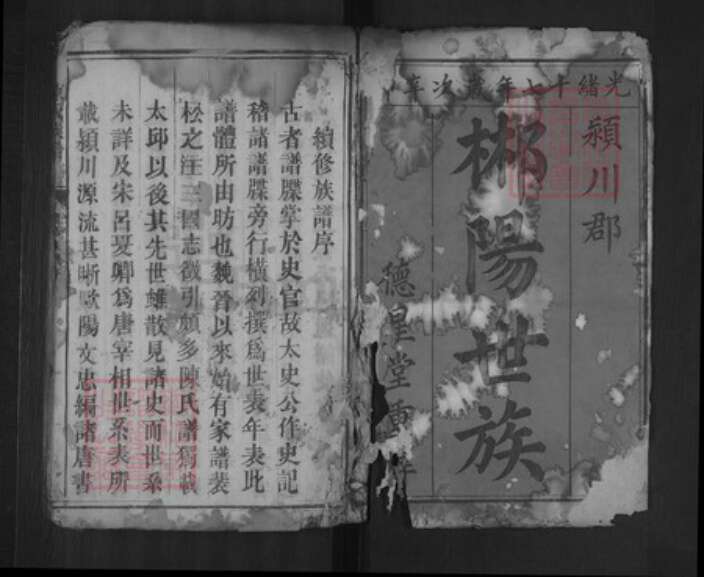 光緒十七年歲次辛
潁川郡
郴陽世族
德星堂重
續修族譜序
古者譜牒掌於史官故太史公作史記
稽諸譜牒旁行橫列撰爲世表年表此
譜體所由昉也魏晉以來始有家譜裴
松之注三國志徵引頗多陳氏譜獨載
太邱以後其先世雖散見諸史而世系
未詳及宋呂夏卿爲唐宰相世系表所
載潁川源流甚晰歐陽文忠編諸唐書